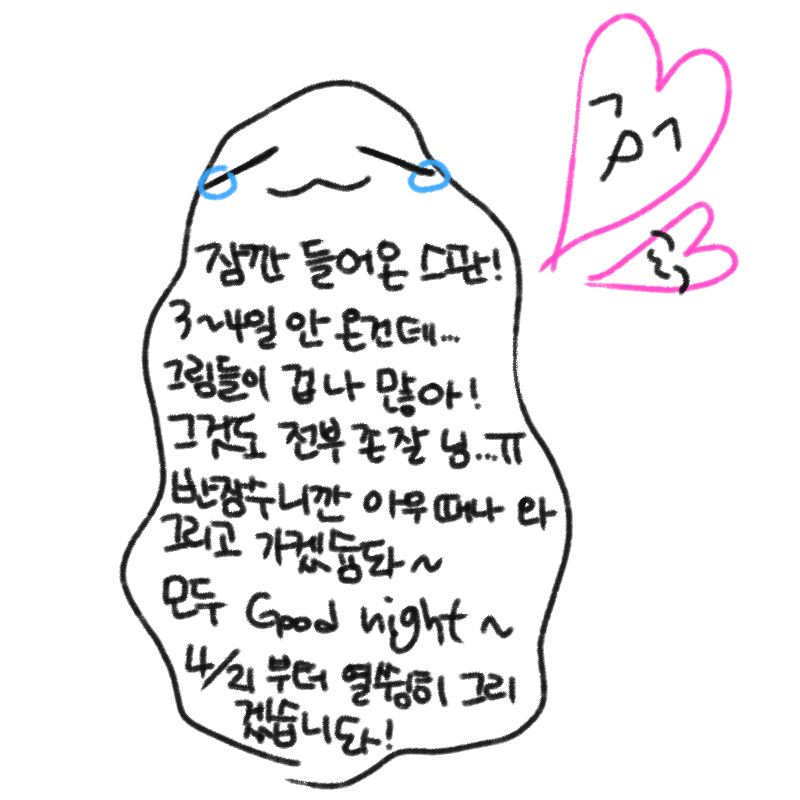 잠깐 들어온 스판!
3~4일 안 온건데...
그림들이 겁나 많아!
그것도 전부 존잘 님...ㅠ
반장수니깐 아무때나 와
그리고 가겠듭돠~
모두 Good night ~
4/21 부터 열쒸미히 그리
겠습니돠!